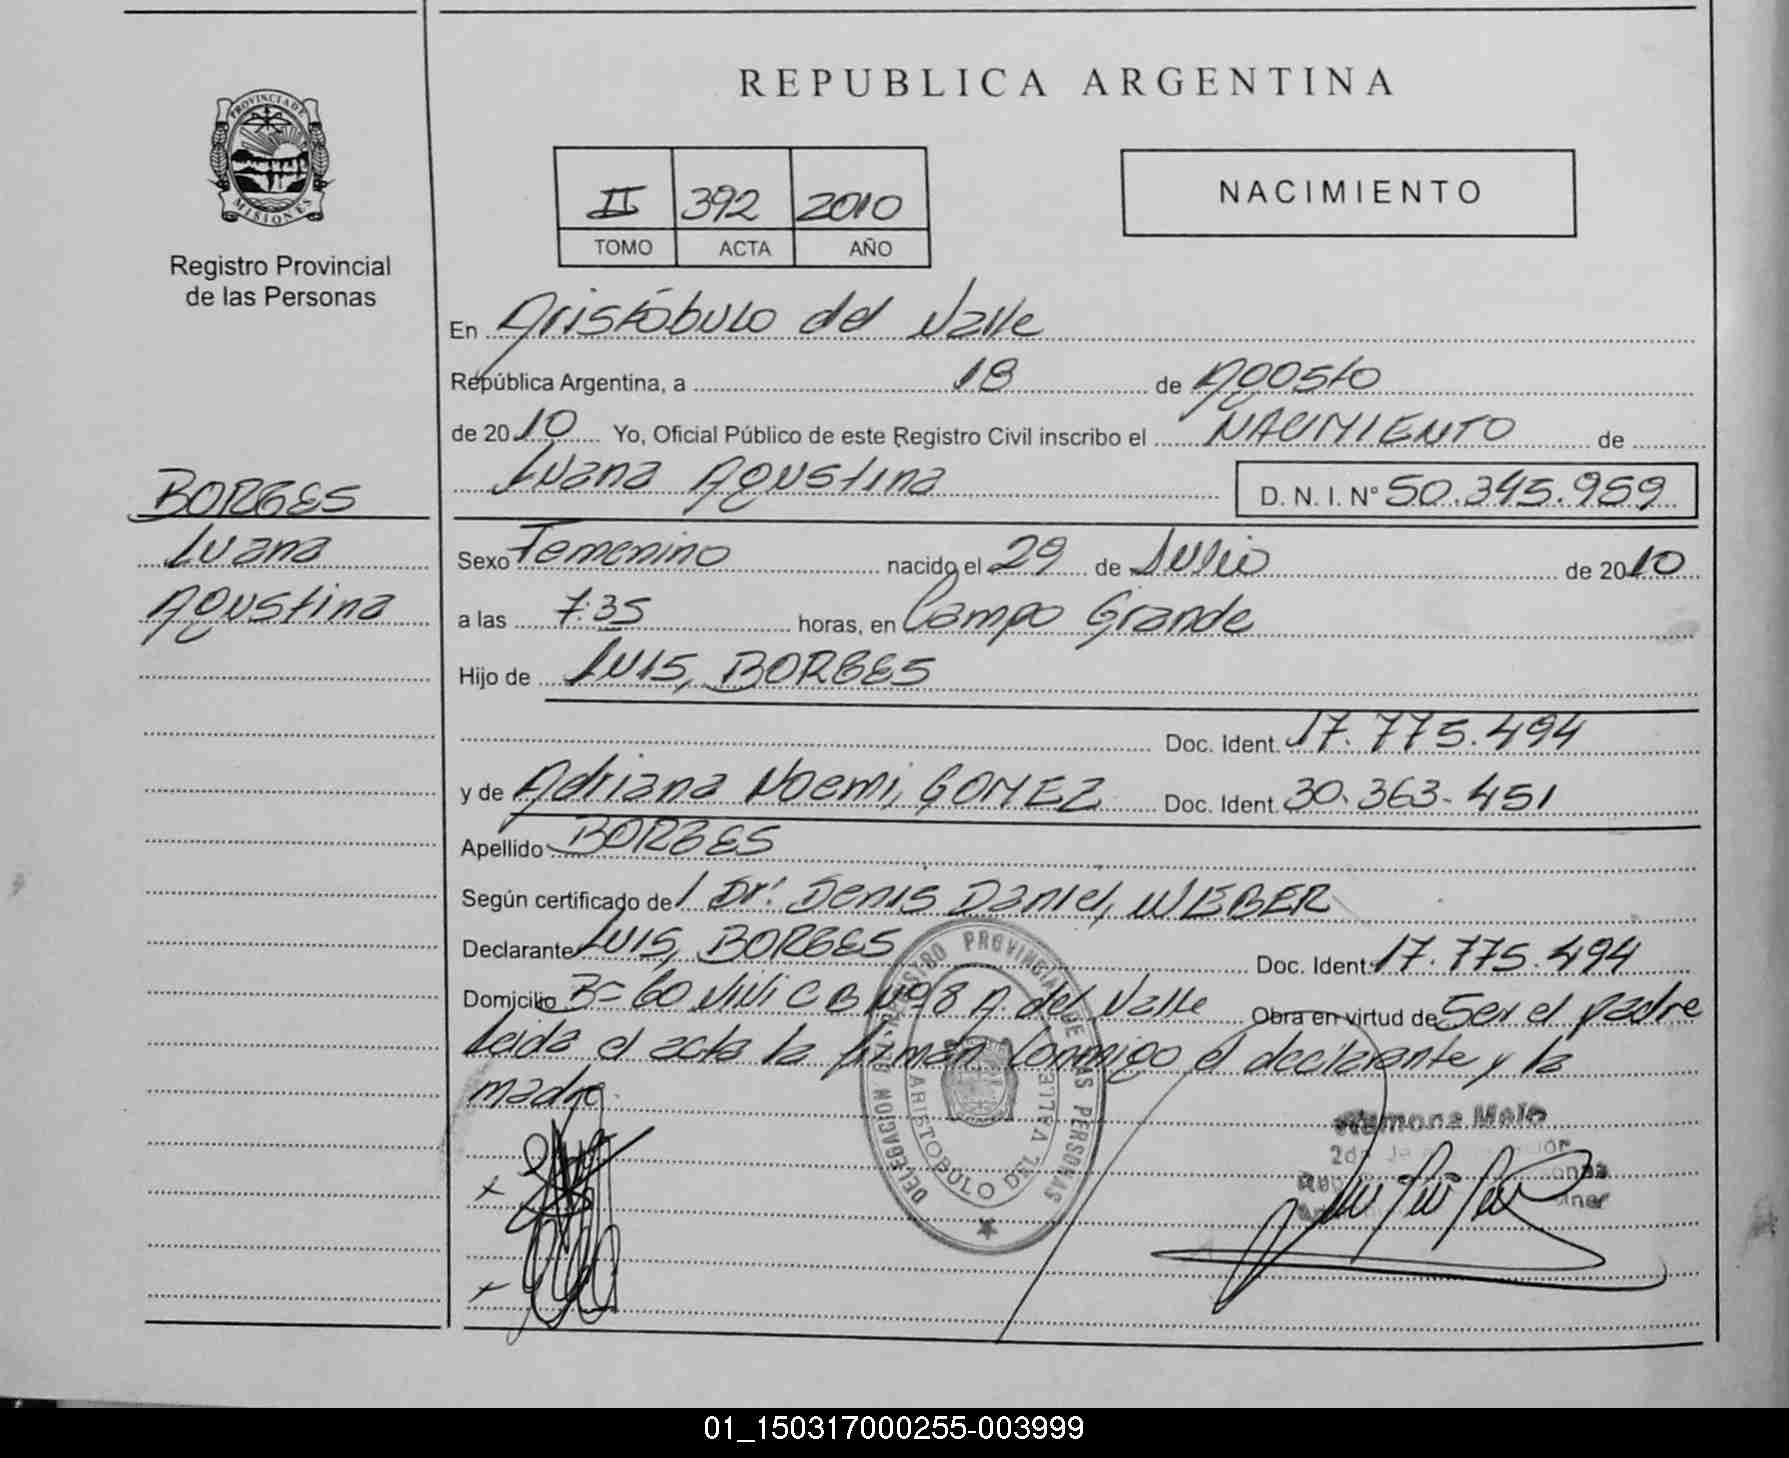 REPUBLICA ARGENTINA
PROVINCIA DE
MISIONES
Registro Provincial
de las Personas
II 392 2010
TOMO ACTA AÑO
NACIMIENTO
En Aristóbulo del Valle
República Argentina, a 18 de Agosto
de 2010 Yo, Oficial Público de este Registro Civil inscribo el NACIMIENTO de
Luana Agustina D. N. I. N° 50.345.959
BORGES
Luana
Agustina
Sexo Femenino nacido el 29 de Julio de 2010
a las 7:35 horas, en Campo Grande
Hijo de LUIS, BORGES
Doc. Ident. 17.775.494
y de Adriana Noemi, GOMEZ Doc. Ident. 30.363.451
Apellido BORGES
Según certificado de / Dr. Denis Daniel, WEBER
Declarante LUIS, BORGES Doc. Ident. 17.775.494
Domicilio B= 60 ViVi C B Nº 98 A. del Valle Obra en virtud de Ser el padre
Leida el acta la firman conmigo el declarante y la
madre.
REGISTRO PROVINCIAL DE LAS PERSONAS
DELEGACION
ARISTOBULO DEL VALLE
Ramona Melo
01_150317000255-003999